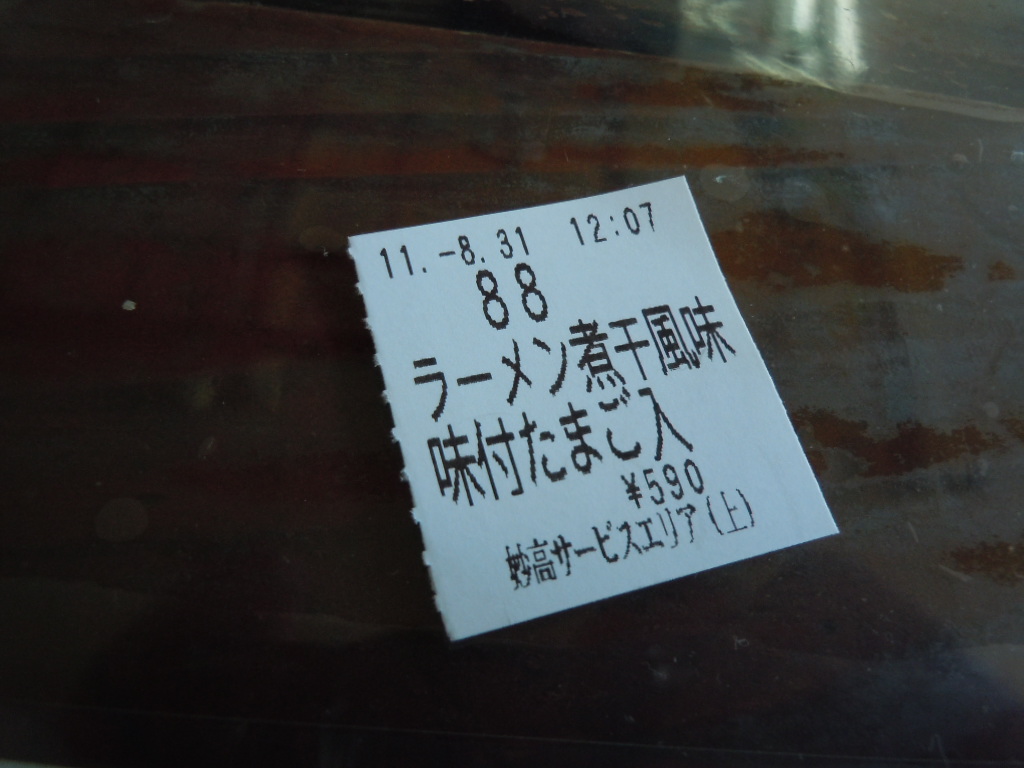 11.-8.31 12:07
88
ラーメン煮干風味
味付たまご入
¥590
妙高サービスエリア(上)